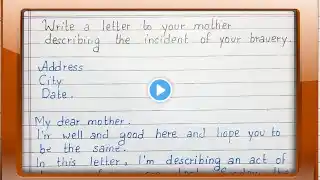 Write a letter to your mother
describing the incident of your bravery.
Address
City
Date.
My dear mother.
I'm well and good here and hope you to
be the same.
In this letter, I'm describing an act of